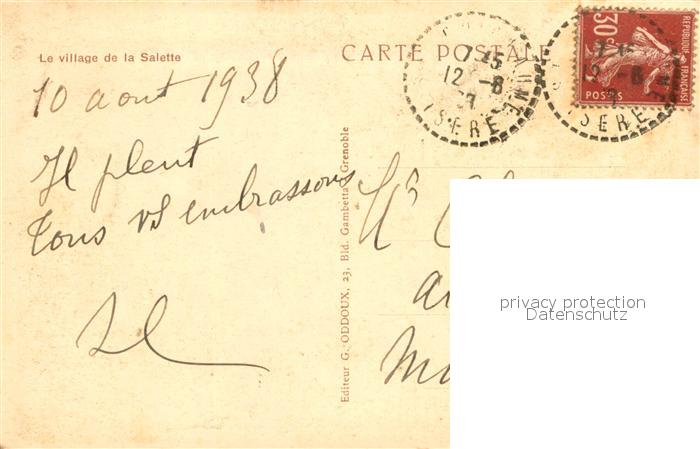 Le village de la Salette
CARTE POSTALE
10 aout 1938
Il pleut
Tous vs embrassons
Editeur G. ODDOUX, 23, Bld. Gambetta, Grenoble
7-15
12 -8
ISERE
30c
REPUBLIQUE FRANÇAISE
POSTES
7-15
12 -8
ISERE
privacy protection
Datenschutz